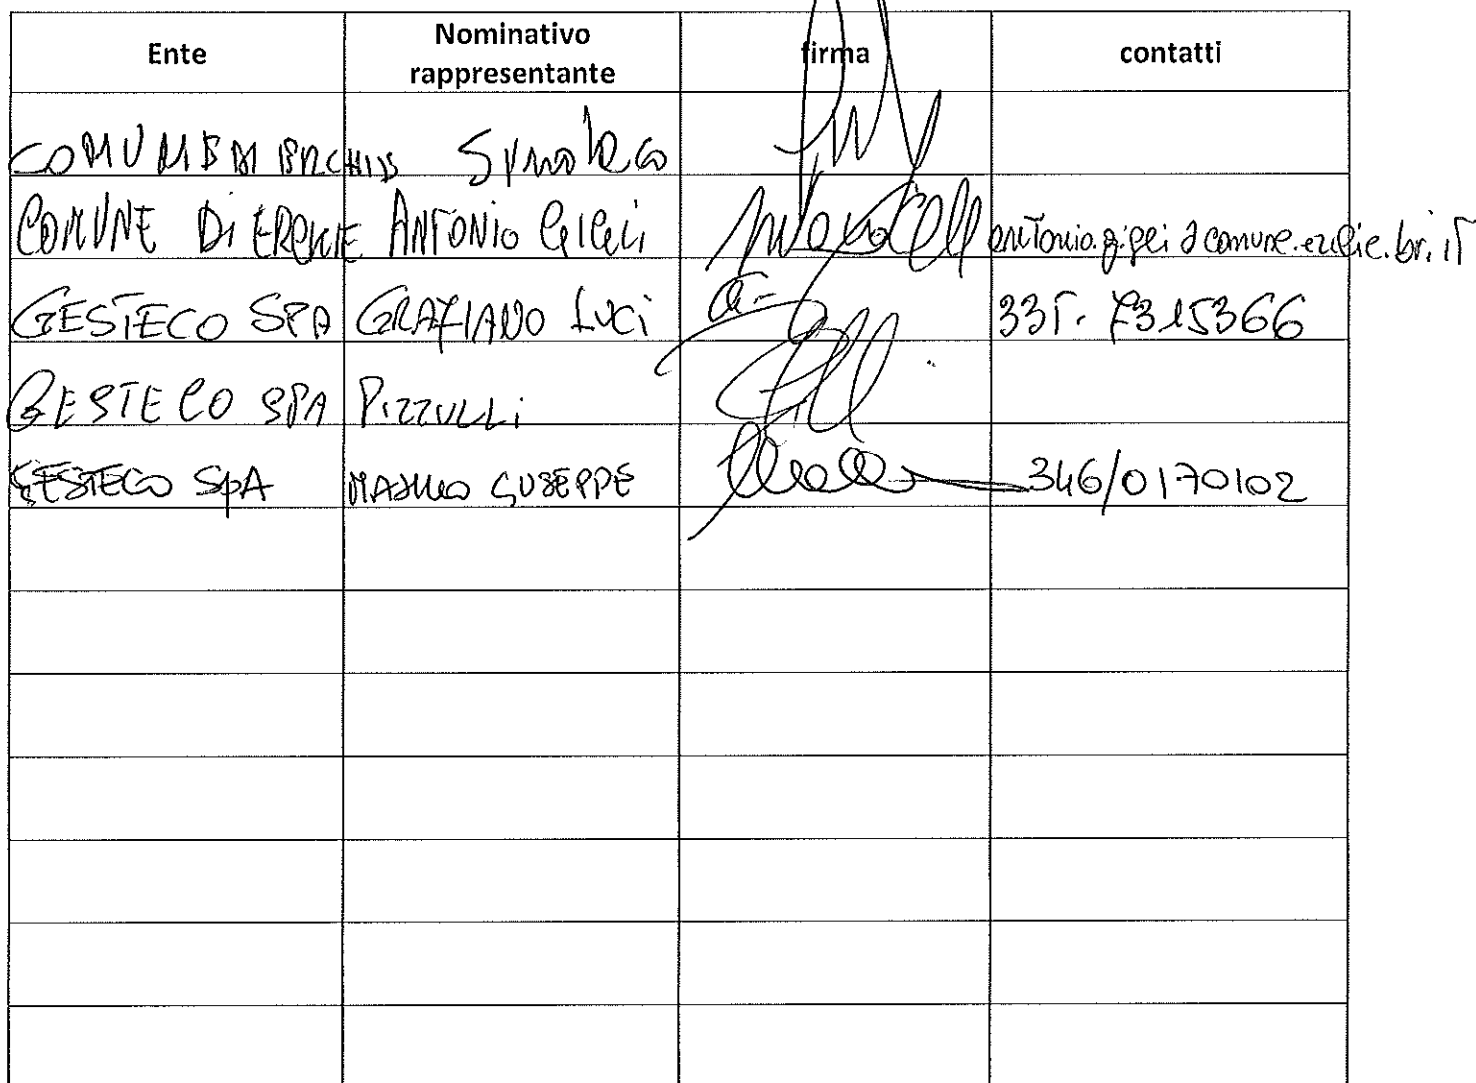 Ente Nominativo rappresentante firma contatti
COMUNE DI ERCHIE Sindaco
COMUNE DI ERCHIE ANTONIO GIGLI antonio.gigli@comune.erchie.br.it
GESTECO SPA GRAZIANO LUCI 335. 7315366
GESTECO SPA PIZZULLI
GESTECO SpA GIUSEPPE 346/0170102